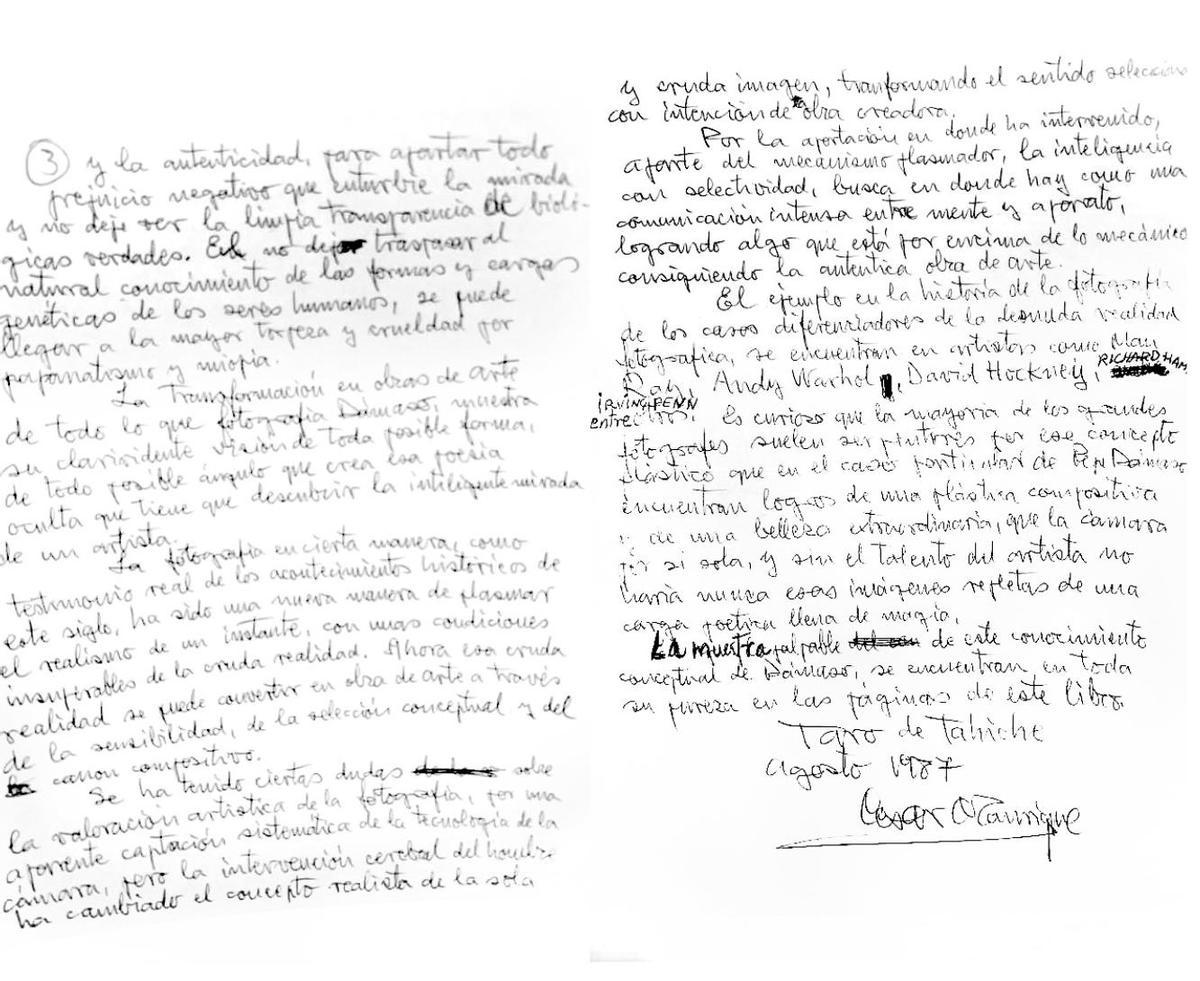 3 y la autenticidad, para apartar todo
prejuicio negativo que enturbie la mirada
y no deje ver la limpia transparencia de bioló-
gicas verdades. El no dejar traspasar al
natural conocimiento de las formas y cargas
genéticas de los seres humanos, se puede
llegar a la mayor torpeza y crueldad por
papanatismo y miopía.
La Transformación en obras de arte
de todo lo que fotografía Dámaso, muestra
su clarividente visión de toda posible forma,
de todo posible ángulo que crea esa poesía
oculta que tiene que descubrir la inteligente mirada
de un artista.
La fotografía en cierta manera, como
testimonio real de los acontecimientos históricos de
este siglo, ha sido una nueva manera de plasmar
el realismo de un instante, con unas condiciones
insuperables de la cruda realidad. Ahora esa cruda
realidad se puede convertir en obra de arte a través
de la sensibilidad, de la selección conceptual y del
canon compositivo.
Se ha tenido ciertas dudas sobre
la valoración artistica de la fotografía, por una
aparente captación sistemática de la tecnología de la
cámara, pero la intervención cerebral del hombre
ha cambiado el concepto realista de la sola
y cruda imagen, tranformando el sentido selecciona
con intención de obra creadora.
Por la aportación en donde ha intervenido,
aparte del mecanismo plasmador, la inteligencia
con selectividad, busca en donde hay como una
comunicación intensa entre mente y aparato,
logrando algo que está por encima de lo mecánico
consiguiendo la autentica obra de arte.
El ejemplo en la historia de la fotografía
de los casos diferenciadores de la desnuda realidad
fotografica, se encuentran en artistas como Man
Ray, Andy Warhol, David Hockney, RICHARD HAM
IRVING PENN
entre otros. Es curioso que la mayoría de los grandes
fotografes suelen ser pintores por ese concepto
plástico que en el caso particular de Pepe Dámaso
encuentran logros de una plástica compositiva
y de una belleza extraordinaria, que la cámara
por si sola, y sin el talento del artista no
haría nunca esas imágenes repletas de una
carga poética llena de magia.
La muestra palpable de este conocimiento
conceptual de Dámaso, se encuentran en toda
su pureza en las páginas de este libro.
Taro de Tahiche
agosto 1987
César Manrique